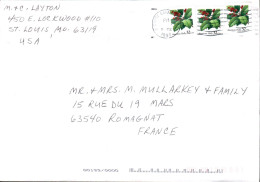 M. & C. LAYTON
450 E. LOCKWOOD #110
ST. LOUIS, MO 63119
USA
MR. & MRS. M. MULLARKEY & FAMILY
15 RUE DU 19 MARS
63540 ROMAGNAT
FRANCE